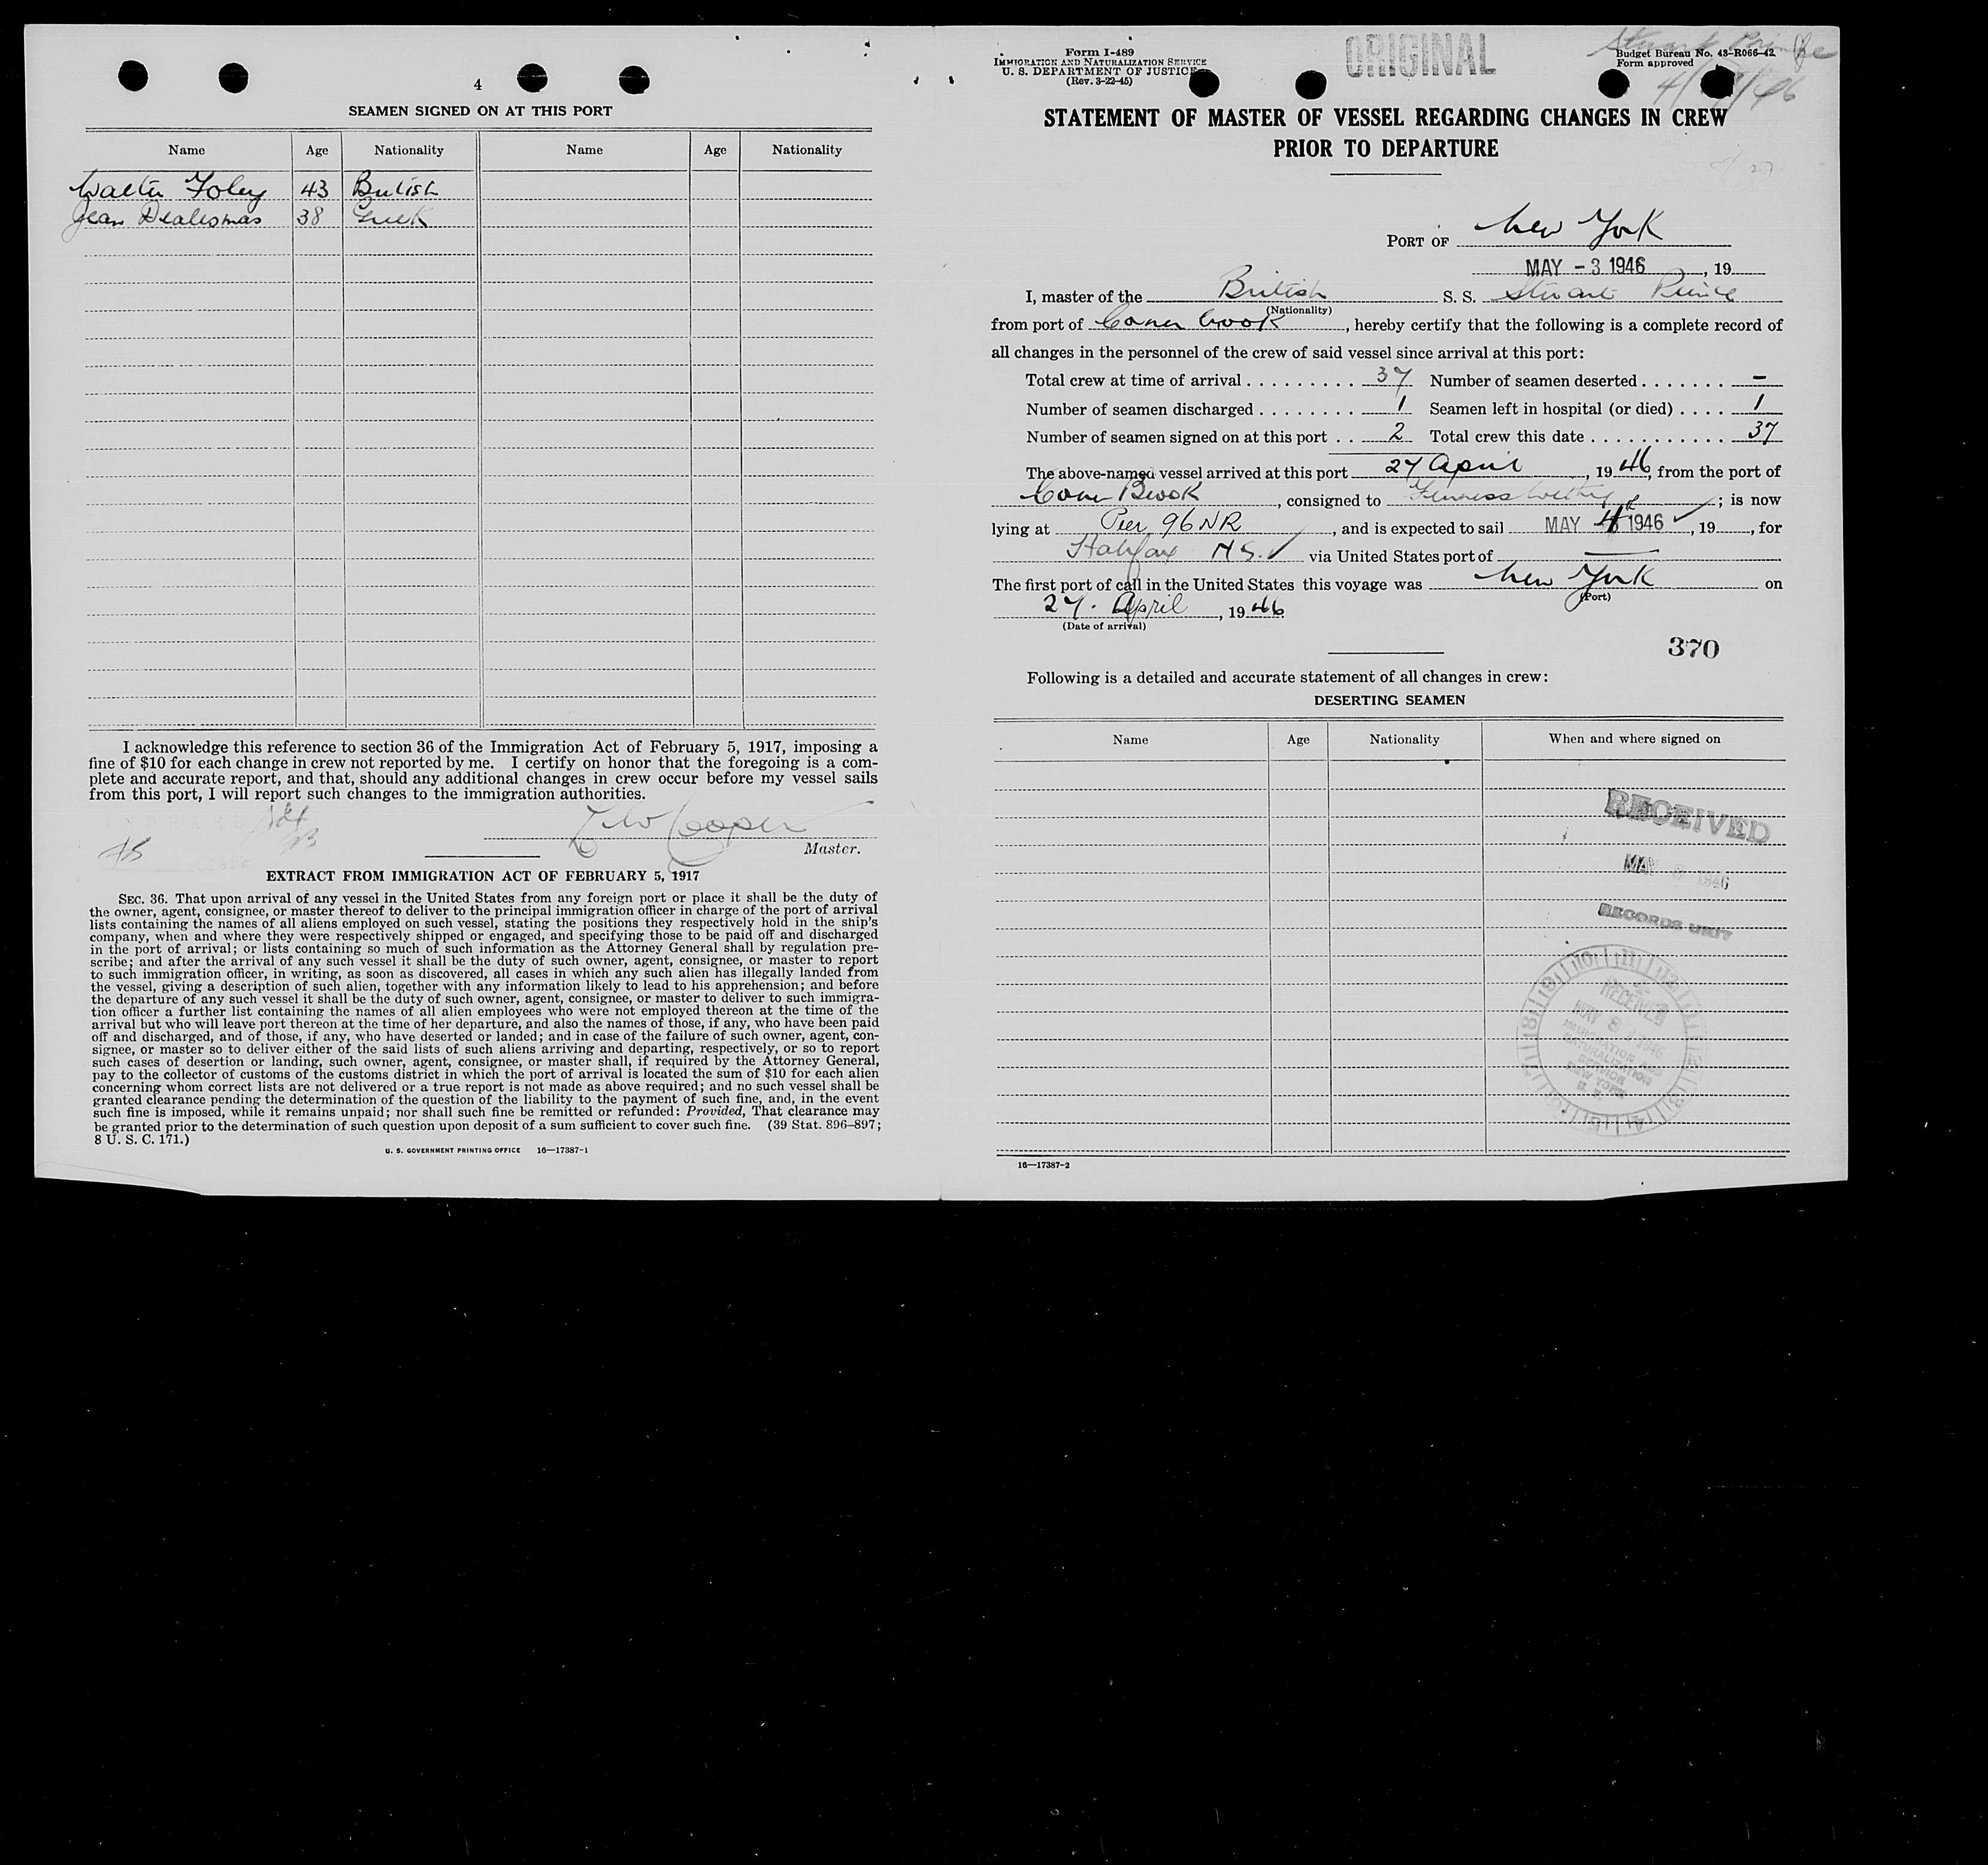 4
SEAMEN SIGNED ON AT THIS PORT
Name Age Nationality Name Age Nationality
Walter Foley 43 British
Jean 38 Greek
I acknowledge this reference to section 36 of the Immigration Act of February 5, 1917, imposing a
fine of $10 for each change in crew not reported by me. I certify on honor that the foregoing is a com-
plete and accurate report, and that, should any additional changes in crew occur before my vessel sails
from this port, I will report such changes to the immigration authorities.
Cooper
Master.
EXTRACT FROM IMMIGRATION ACT OF FEBRUARY 5, 1917
SEC. 36. That upon arrival of any vessel in the United States from any foreign port or place it shall be the duty of
the owner, agent, consignee, or master thereof to deliver to the principal immigration officer in charge of the port of arrival
lists containing the names of all aliens employed on such vessel, stating the positions they respectively hold in the ship's
company, when and where they were respectively shipped or engaged, and specifying those to be paid off and discharged
in the port of arrival; or lists containing so much of such information as the Attorney General shall by regulation pre-
scribe; and after the arrival of any such vessel it shall be the duty of such owner, agent, consignee, or master to report
to such immigration officer, in writing, as soon as discovered, all cases in which any such alien has illegally landed from
the vessel, giving a description of such alien, together with any information likely to lead to his apprehension; and before
the departure of any such vessel it shall be the duty of such owner, agent, consignee, or master to deliver to such immigra-
tion officer a further list containing the names of all alien employees who were not employed thereon at the time of the
arrival but who will leave port thereon at the time of her departure, and also the names of those, if any, who have been paid
off and discharged, and of those, if any, who have deserted or landed; and in case of the failure of such owner, agent, con-
signee, or master so to deliver either of the said lists of such aliens arriving and departing, respectively, or so to report
such cases of desertion or landing, such owner, agent, consignee, or master shall, if required by the Attorney General,
pay to the collector of customs of the customs district in which the port of arrival is located the sum of $10 for each alien
concerning whom correct lists are not delivered or a true report is not made as above required; and no such vessel shall be
granted clearance pending the determination of the question of the liability to the payment of such fine, and, in the event
such fine is imposed, while it remains unpaid; nor shall such fine be remitted or refunded: Provided, That clearance may
be granted prior to the determination of such question upon deposit of a sum sufficient to cover such fine. (39 Stat. 896-897;
8 U. S. C. 171.)
U. S. GOVERNMENT PRINTING OFFICE 16—17387-1
Form I-489
IMMIGRATION AND NATURALIZATION SERVICE
U. S. DEPARTMENT OF JUSTICE
(Rev. 3-22-45)
ORIGINAL
Stuart Prince
Budget Bureau No. 43-R066-42
Form approved
STATEMENT OF MASTER OF VESSEL REGARDING CHANGES IN CREW
PRIOR TO DEPARTURE
PORT OF New York
MAY - 3 1946, 19
I, master of the British S. S. Stuart Prince
(Nationality)
from port of Corner Brook, hereby certify that the following is a complete record of
all changes in the personnel of the crew of said vessel since arrival at this port:
Total crew at time of arrival 37 Number of seamen deserted —
Number of seamen discharged 1 Seamen left in hospital (or died) 1
Number of seamen signed on at this port 2 Total crew this date 37
The above-named vessel arrived at this port 27 April, 1946, from the port of
Corner Brook, consigned to Furness Withy; is now
lying at Pier 96 NR, and is expected to sail MAY 4 1946, 19, for
Halifax N S. via United States port of —
The first port of call in the United States this voyage was New York on
(Port)
27. April, 1946.
(Date of arrival)
370
Following is a detailed and accurate statement of all changes in crew:
DESERTING SEAMEN
Name Age Nationality When and where signed on
RECEIVED
MAY 8 1946
RECORDS UNIT
RECEIVED
MAY 8 1946
IMMIGRATION AND
NATURALIZATION
SERVICE
NEW YORK
16—17387-2